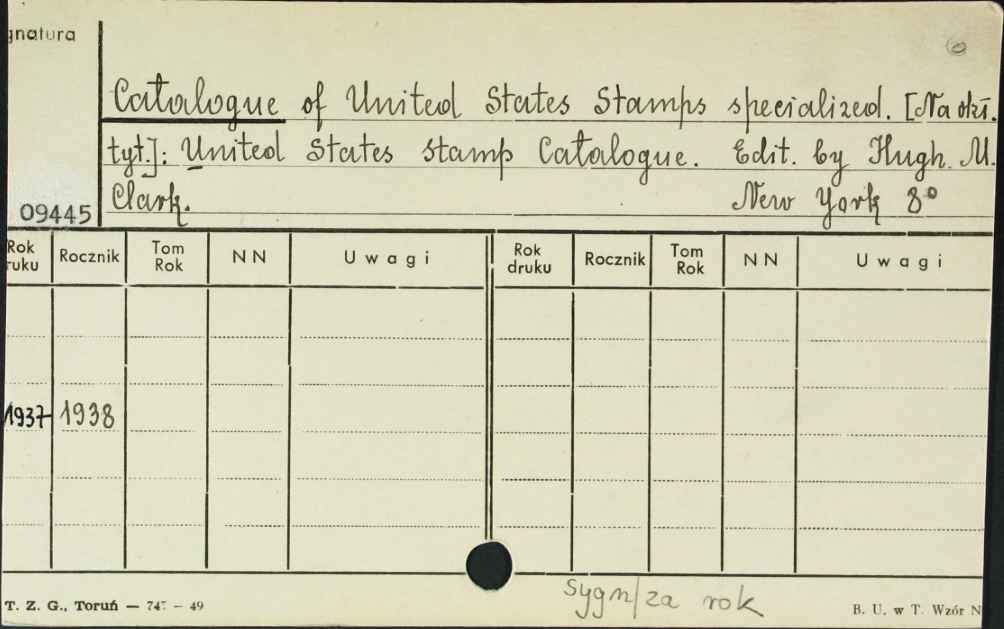 gnatura
Catalogue of United States Stamps specialized. [Na okł.
tyt.]: United States Stamp Catalogue. Edit. by Hugh M.
Clark. New York 8°
09445
Rok ruku Rocznik Tom Rok NN Uwagi Rok druku Rocznik Tom Rok NN Uwagi
1937 1938
sygn/za rok
T. Z. G., Toruń — 49
B. U. w T. Wzór N